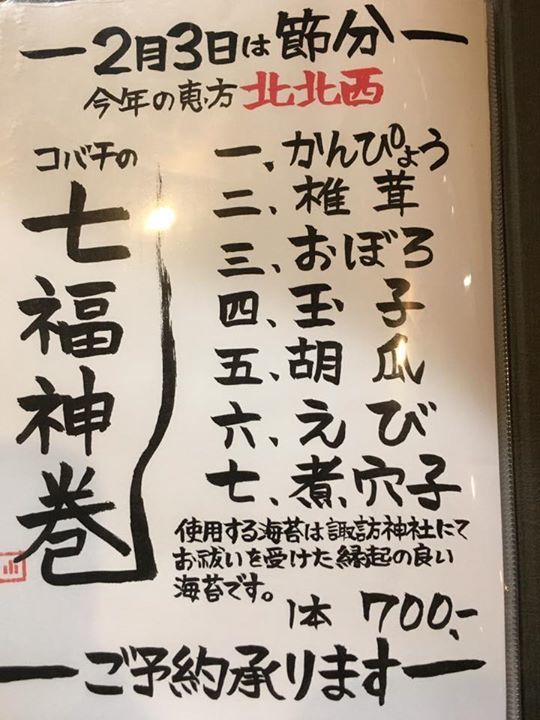 2月3日は節分
今年の恵方 北北西
コバチの
七福神巻
一、かんぴょう
二、椎茸
三、おぼろ
四、玉子
五、胡瓜
六、えび
七、煮穴子
使用する海苔は諏訪神社にて
お祓いを受けた縁起の良い
海苔です。
1本 700-
ご予約承ります